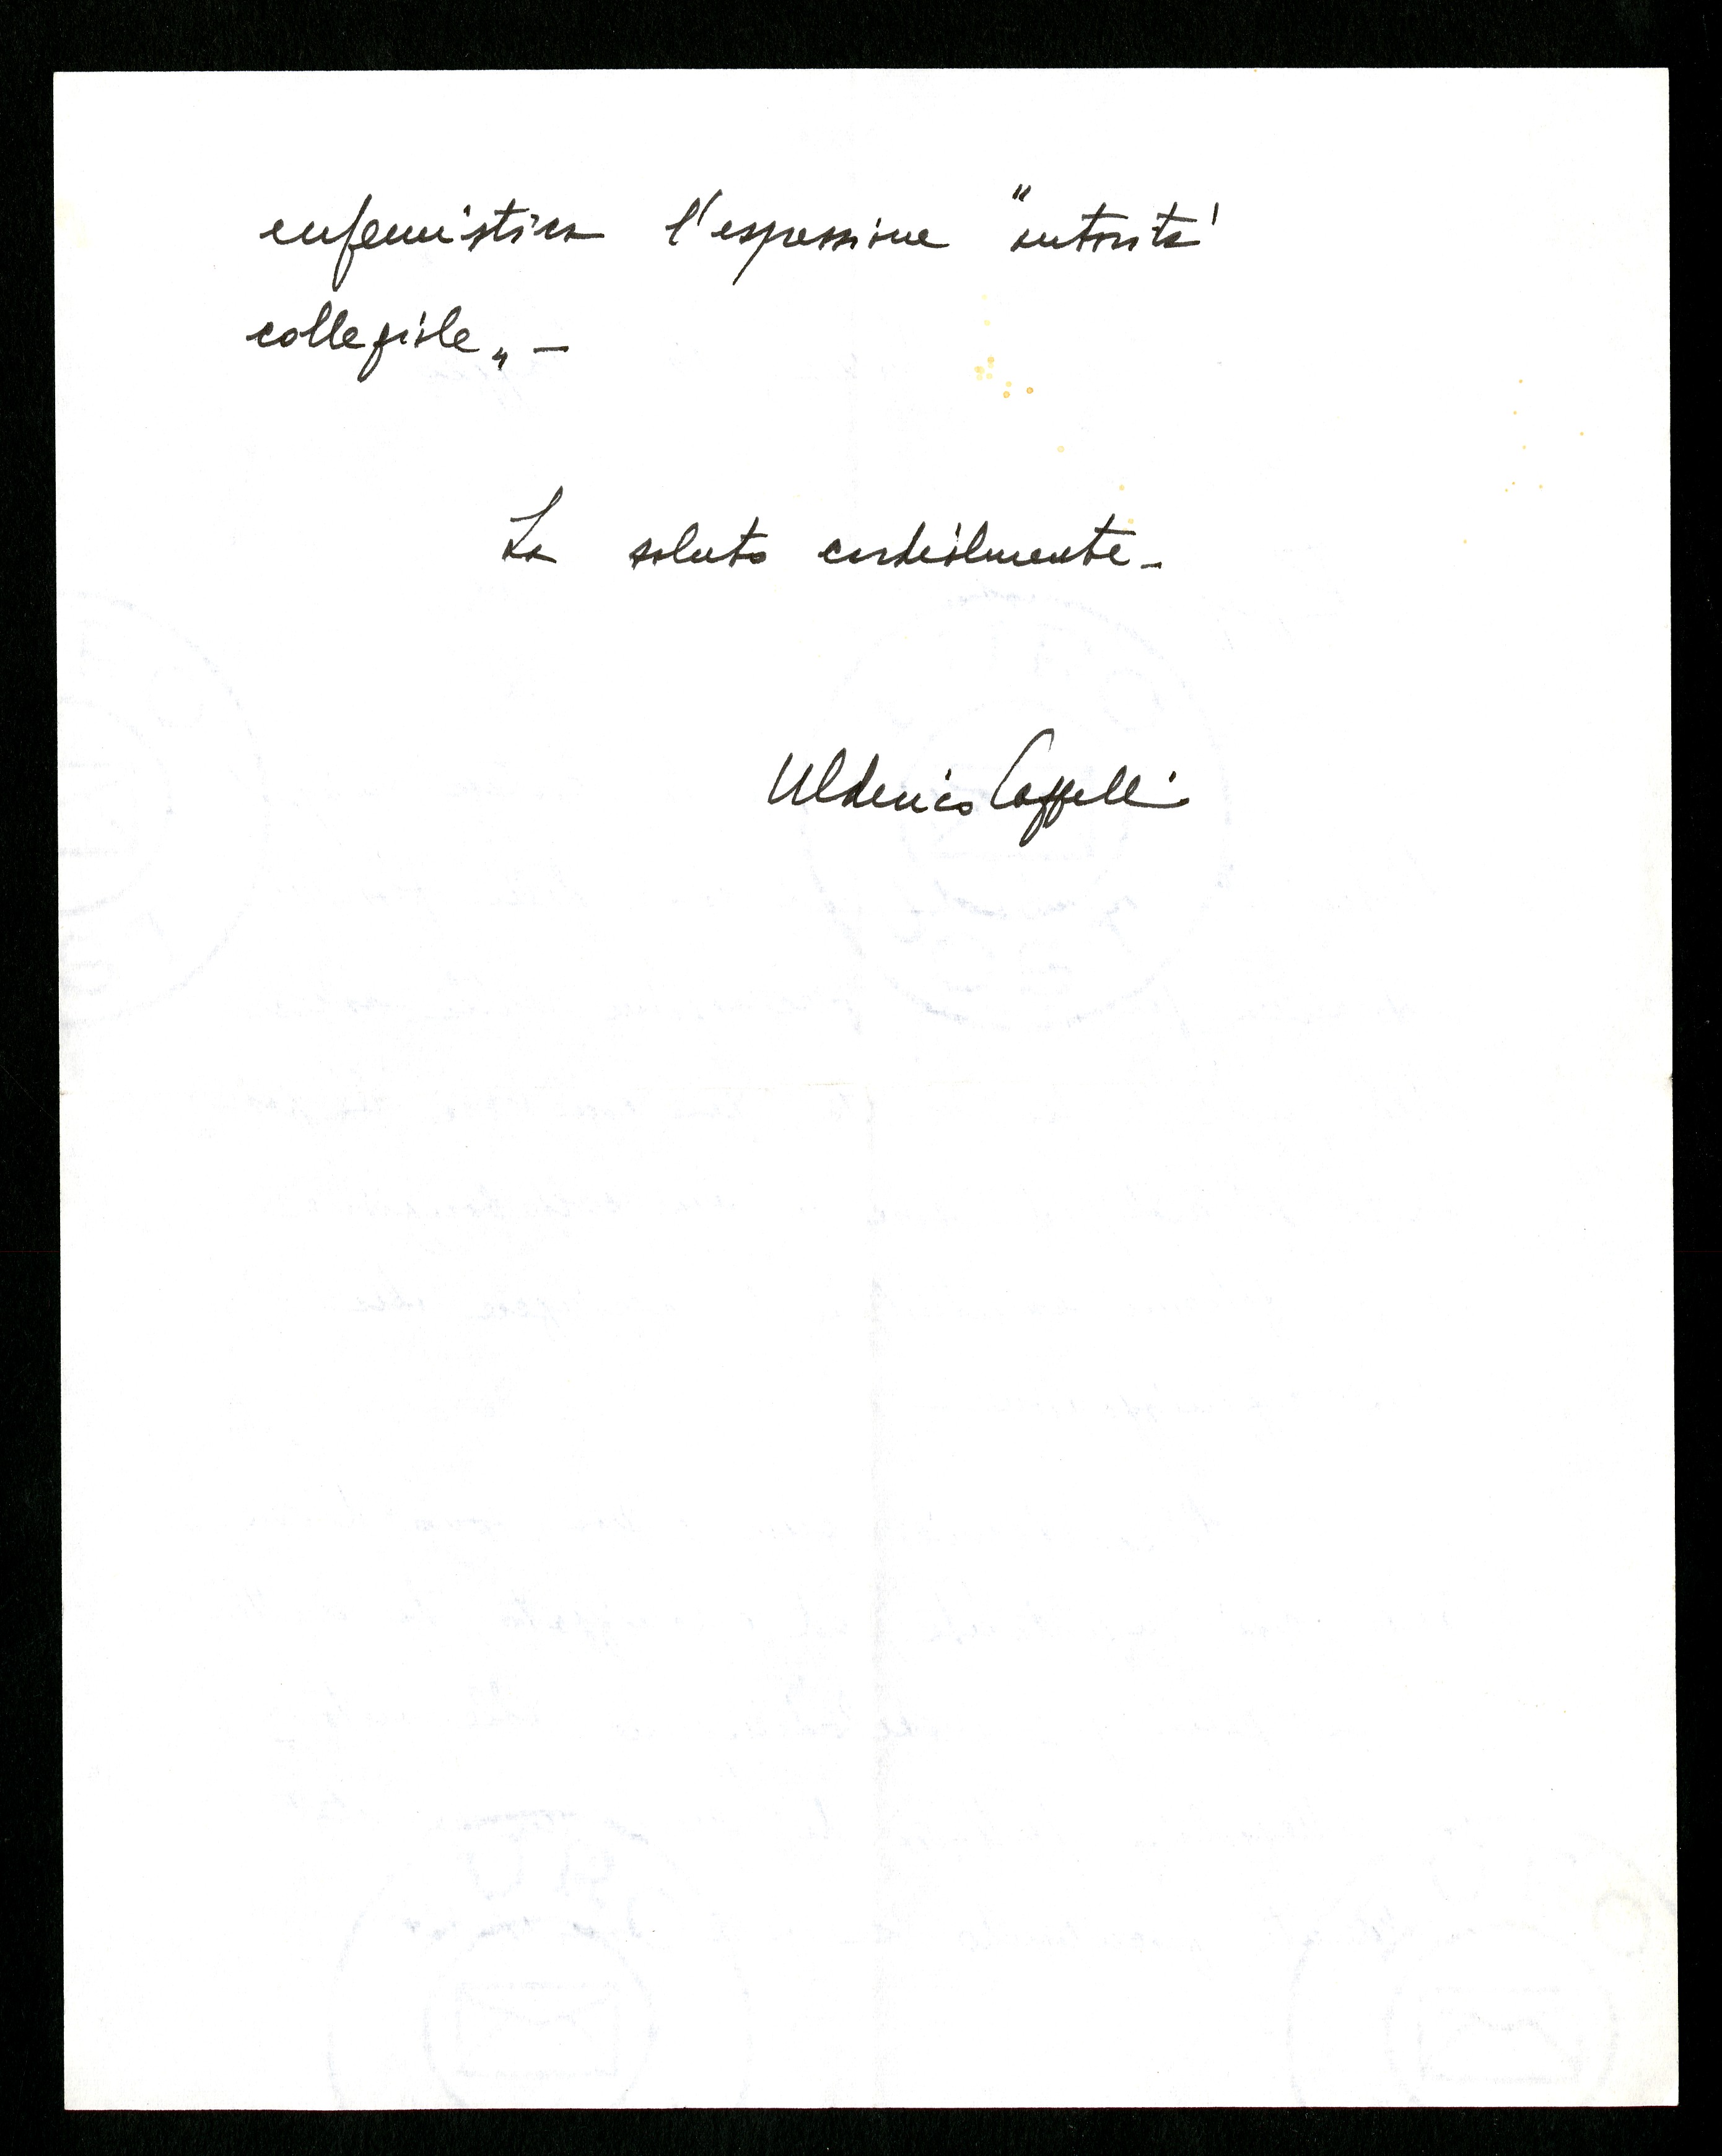 eufemistica l'espressione "autorità
collegiale„ –
La saluto cordialmente –
Ulderico Cappelli